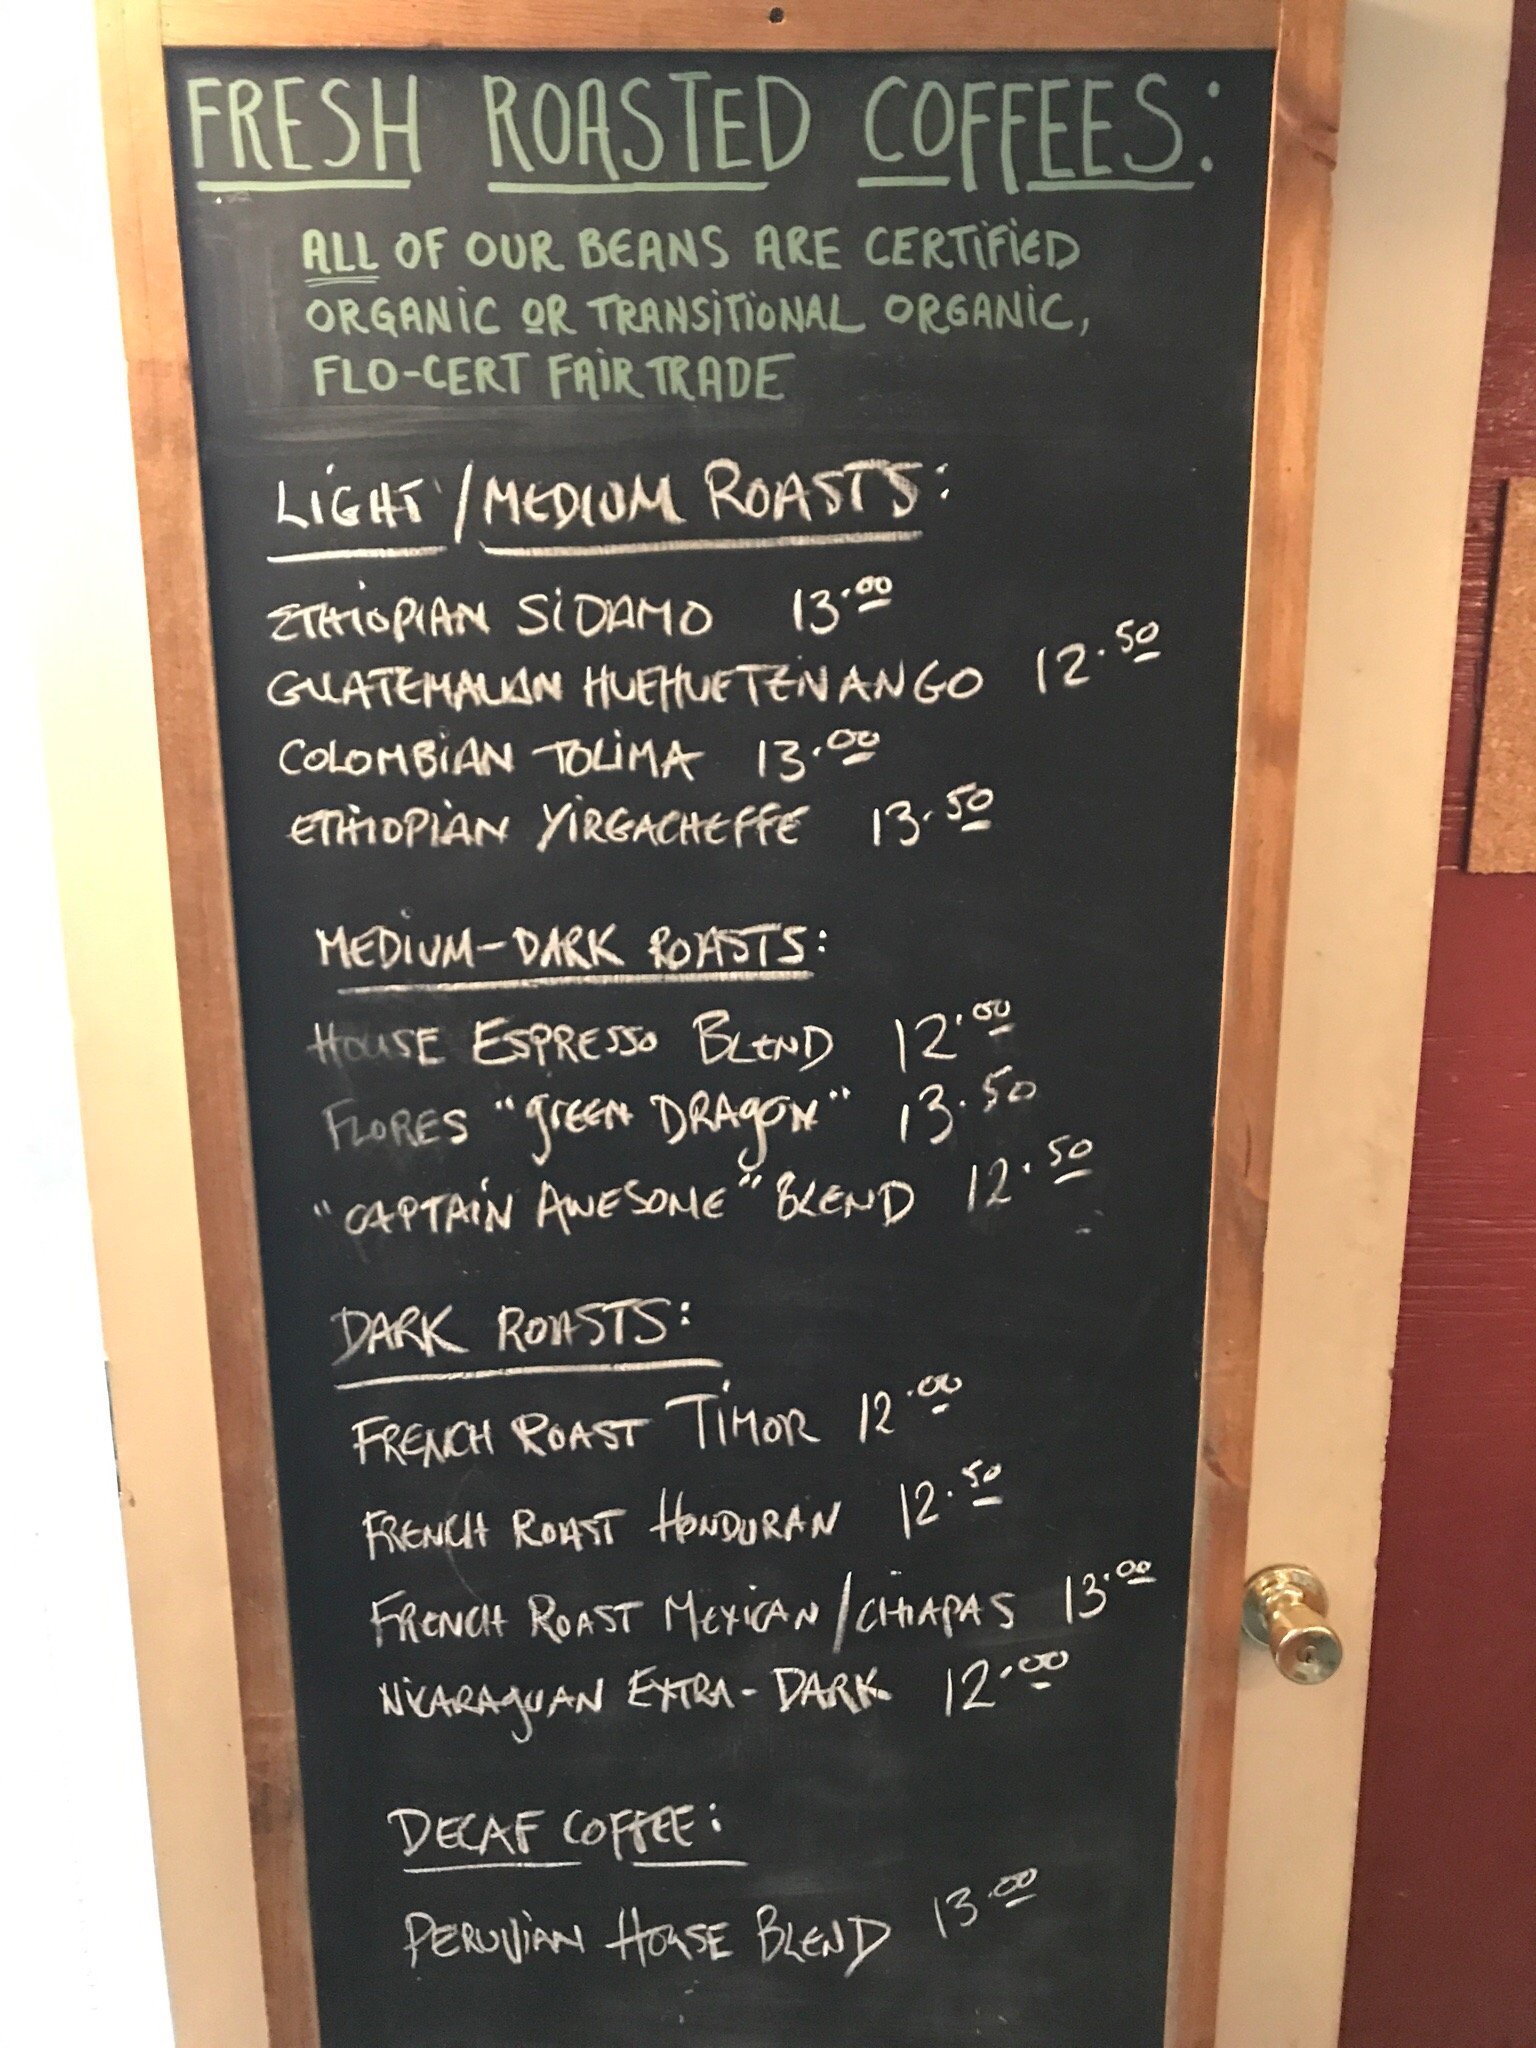 FRESH ROASTED COFFEES:
ALL OF OUR BEANS ARE CERTIFIED
ORGANIC OR TRANSITIONAL ORGANIC,
FLO-CERT FAIR TRADE
LIGHT/MEDIUM ROASTS:
ETHIOPIAN SIDAMO 13.00
GUATEMALAN HUEHUETENANGO 12.50
COLOMBIAN TOLIMA 13.00
ETHIOPIAN YIRGACHEFFE 13.50
MEDIUM-DARK ROASTS:
HOUSE ESPRESSO BLEND 12.00
FLORES "GREEN DRAGON" 13.50
"CAPTAIN AWESOME" BLEND 12.50
DARK ROASTS:
FRENCH ROAST TIMOR 12.00
FRENCH ROAST HONDURAN 12.50
FRENCH ROAST MEXICAN/CHIAPAS 13.00
NICARAGUAN EXTRA-DARK 12.00
DECAF COFFEE:
PERUVIAN HOUSE BLEND 13.00